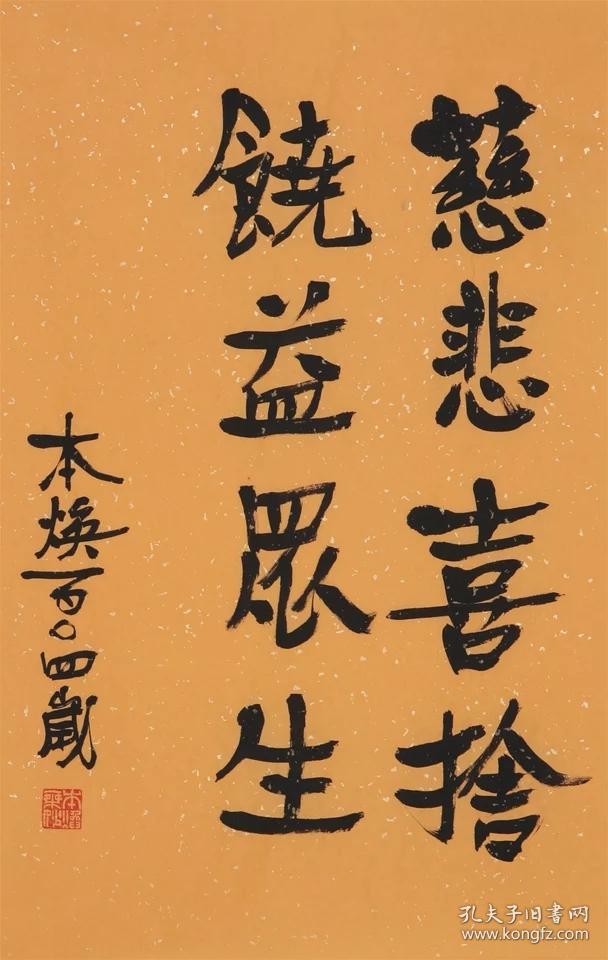 慈悲喜捨
饒益眾生
本煥一百〇四歲
孔夫子旧书网
www.kongfz.com